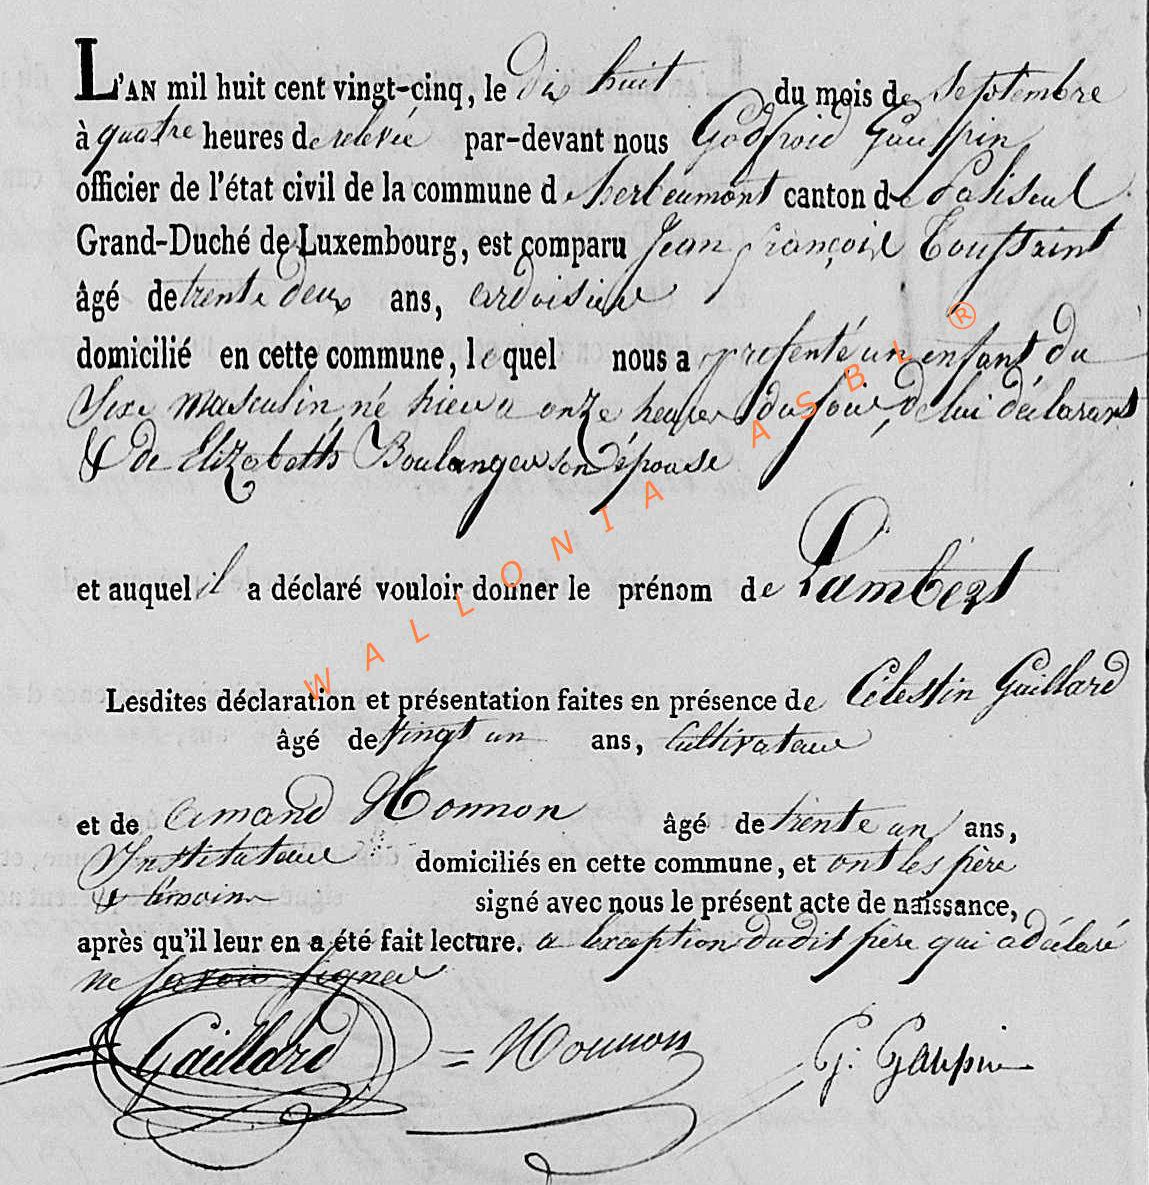 L'AN mil huit cent vingt-cinq, le dix huit du mois de Septembre
à quatre heures de relevée par-devant nous Godfroid Gaupin
officier de l'état civil de la commune d'herbeumont canton de Paliseul
Grand-Duché de Luxembourg, est comparu Jean françois Toussaint
âgé de trente deux ans, ardoisier
domicilié en cette commune, lequel nous a présenté un enfant du
Sexe masculin, né hier a onze heures du soir, de lui déclarant
& de Elizabeth Boulanger son épouse
et auquel il a déclaré vouloir donner le prénom de Lambert
Lesdites déclaration et présentation faites en présence de Célestin Gaillard
âgé de vingt un ans, Cultivateur
et de amand Honnon âgé de trente un ans,
Instituteur domiciliés en cette commune, et ont les père
& témoins signé avec nous le présent acte de naissance,
après qu'il leur en a été fait lecture. a Exception dudit père qui a déclaré
ne Savoir signer
Gaillard = Honnon G: Gaupin
WALLONIA ASBL ®